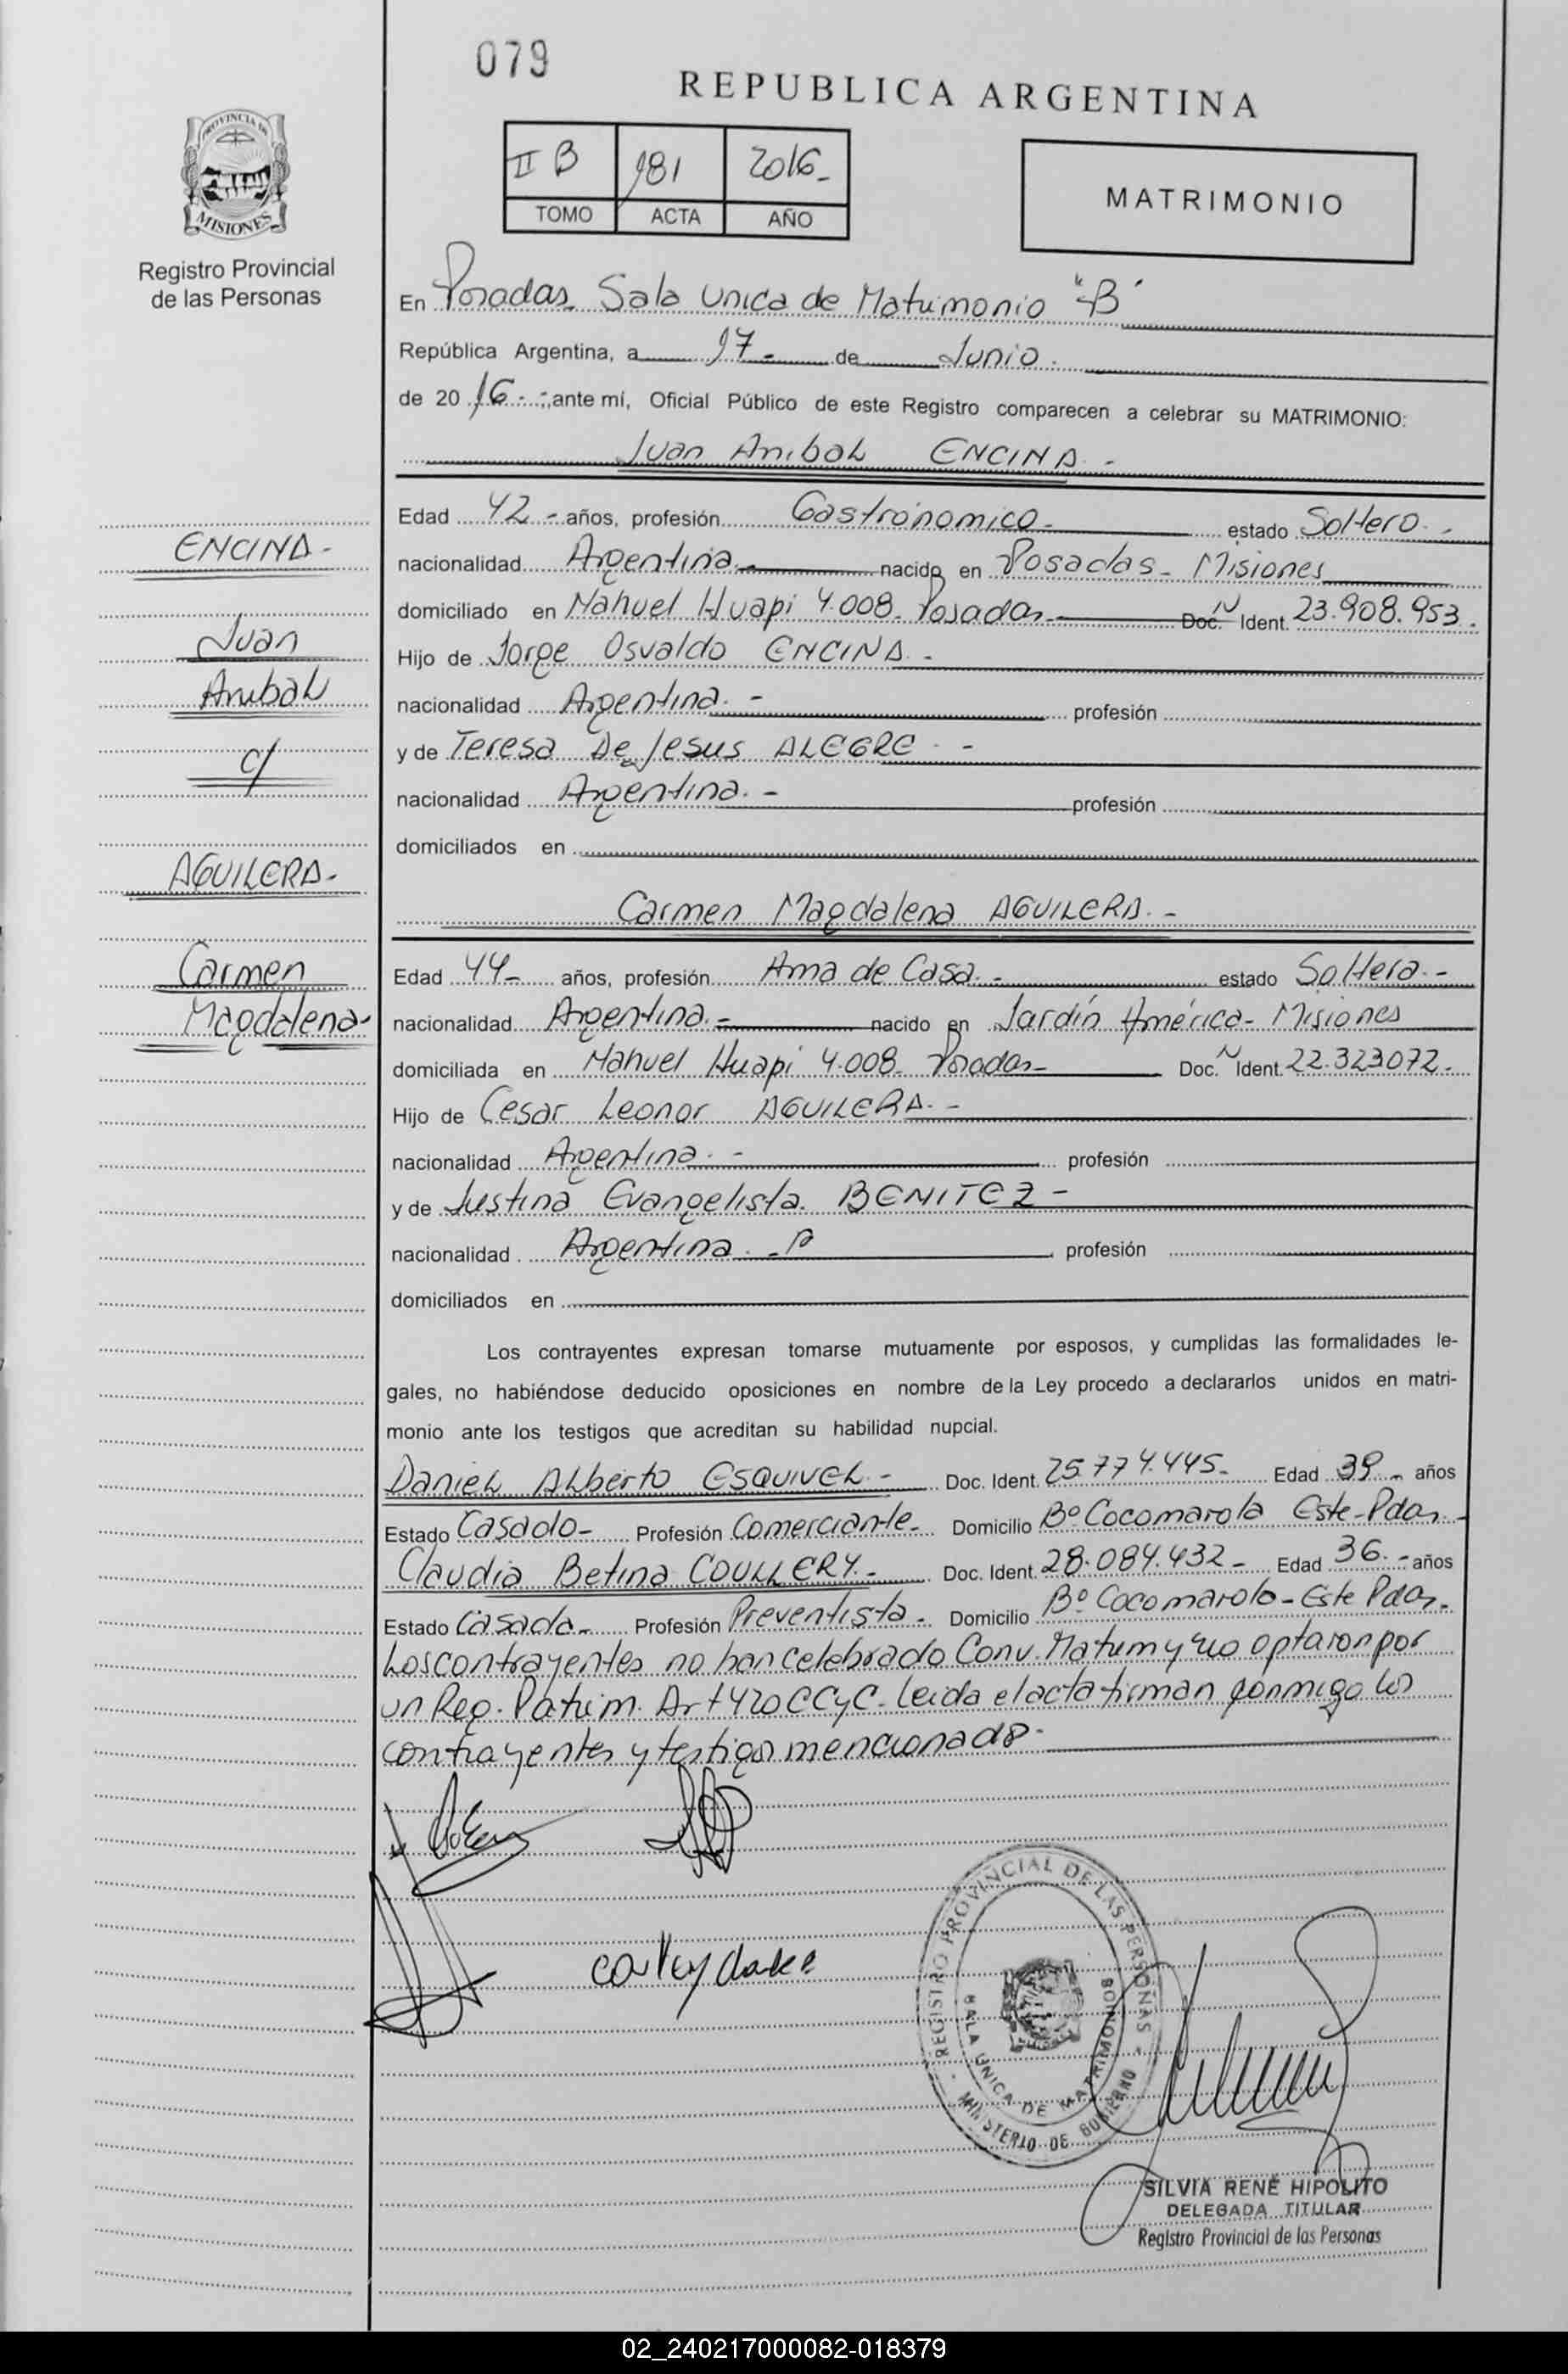 079
REPUBLICA ARGENTINA
PROVINCIA DE
MISIONES
Registro Provincial
de las Personas
II B 181 2016-
TOMO ACTA AÑO
MATRIMONIO
En Posadas Sala Unica de Matrimonio "B"
República Argentina, a 17- de Junio.
de 20 16.- ante mí, Oficial Público de este Registro comparecen a celebrar su MATRIMONIO:
Juan Anibal ENCINA.-
Edad 42- años, profesión Gastrónomico- estado Soltero.-
nacionalidad Argentina.- nacido en Posadas- Misiones
domiciliado en Nahuel Huapi 4.008- Posadas- Doc. N Ident. 23.908.953.
Hijo de Jorge Osvaldo ENCINA.-
nacionalidad Argentina.- profesión
y de Teresa De Jesus ALEGRE.-
nacionalidad Argentina.- profesión
domiciliados en
ENCINA-
Juan
Anibal
c/
AGUILERA-
Carmen
Magdalena-
Carmen Magdalena AGUILERA.-
Edad 44- años, profesión Ama de Casa.- estado Soltera.-
nacionalidad Argentina.- nacido en Jardín América- Misiones
domiciliada en Nahuel Huapi 4.008- Posadas- Doc. N Ident. 22.323072-
Hijo de Cesar Leonor AGUILERA.-
nacionalidad Argentina.- profesión
y de Justina Evangelista BENITEZ-
nacionalidad Argentina.- profesión
domiciliados en
Los contrayentes expresan tomarse mutuamente por esposos, y cumplidas las formalidades le-
gales, no habiéndose deducido oposiciones en nombre de la Ley procedo a declararlos unidos en matri-
monio ante los testigos que acreditan su habilidad nupcial.
Daniel Alberto ESQUIVEL- Doc. Ident. 25.774.445- Edad 39- años
Estado Casado- Profesión Comerciante- Domicilio Bº Cocomarola Este-Pdas.-
Claudia Betina COULLERY- Doc. Ident. 28.084.432- Edad 36.- años
Estado Casada- Profesión Preventista- Domicilio Bº Cocomarola-Este Pdas.-
Los contrayentes no han celebrado Conv. Matrim y no optaron por
un Reg. Patrim. Art 420 CCyC. leida el acta firman conmigo los
contrayentes y testigos mencionado-
REGISTRO PROVINCIAL DE LAS PERSONAS
SALA ÚNICA DE MATRIMONIOS
MINISTERIO DE GOBIERNO
SILVIA RENÉ HIPOLITO
DELEGADA TITULAR
Registro Provincial de las Personas
02_240217000082-018379